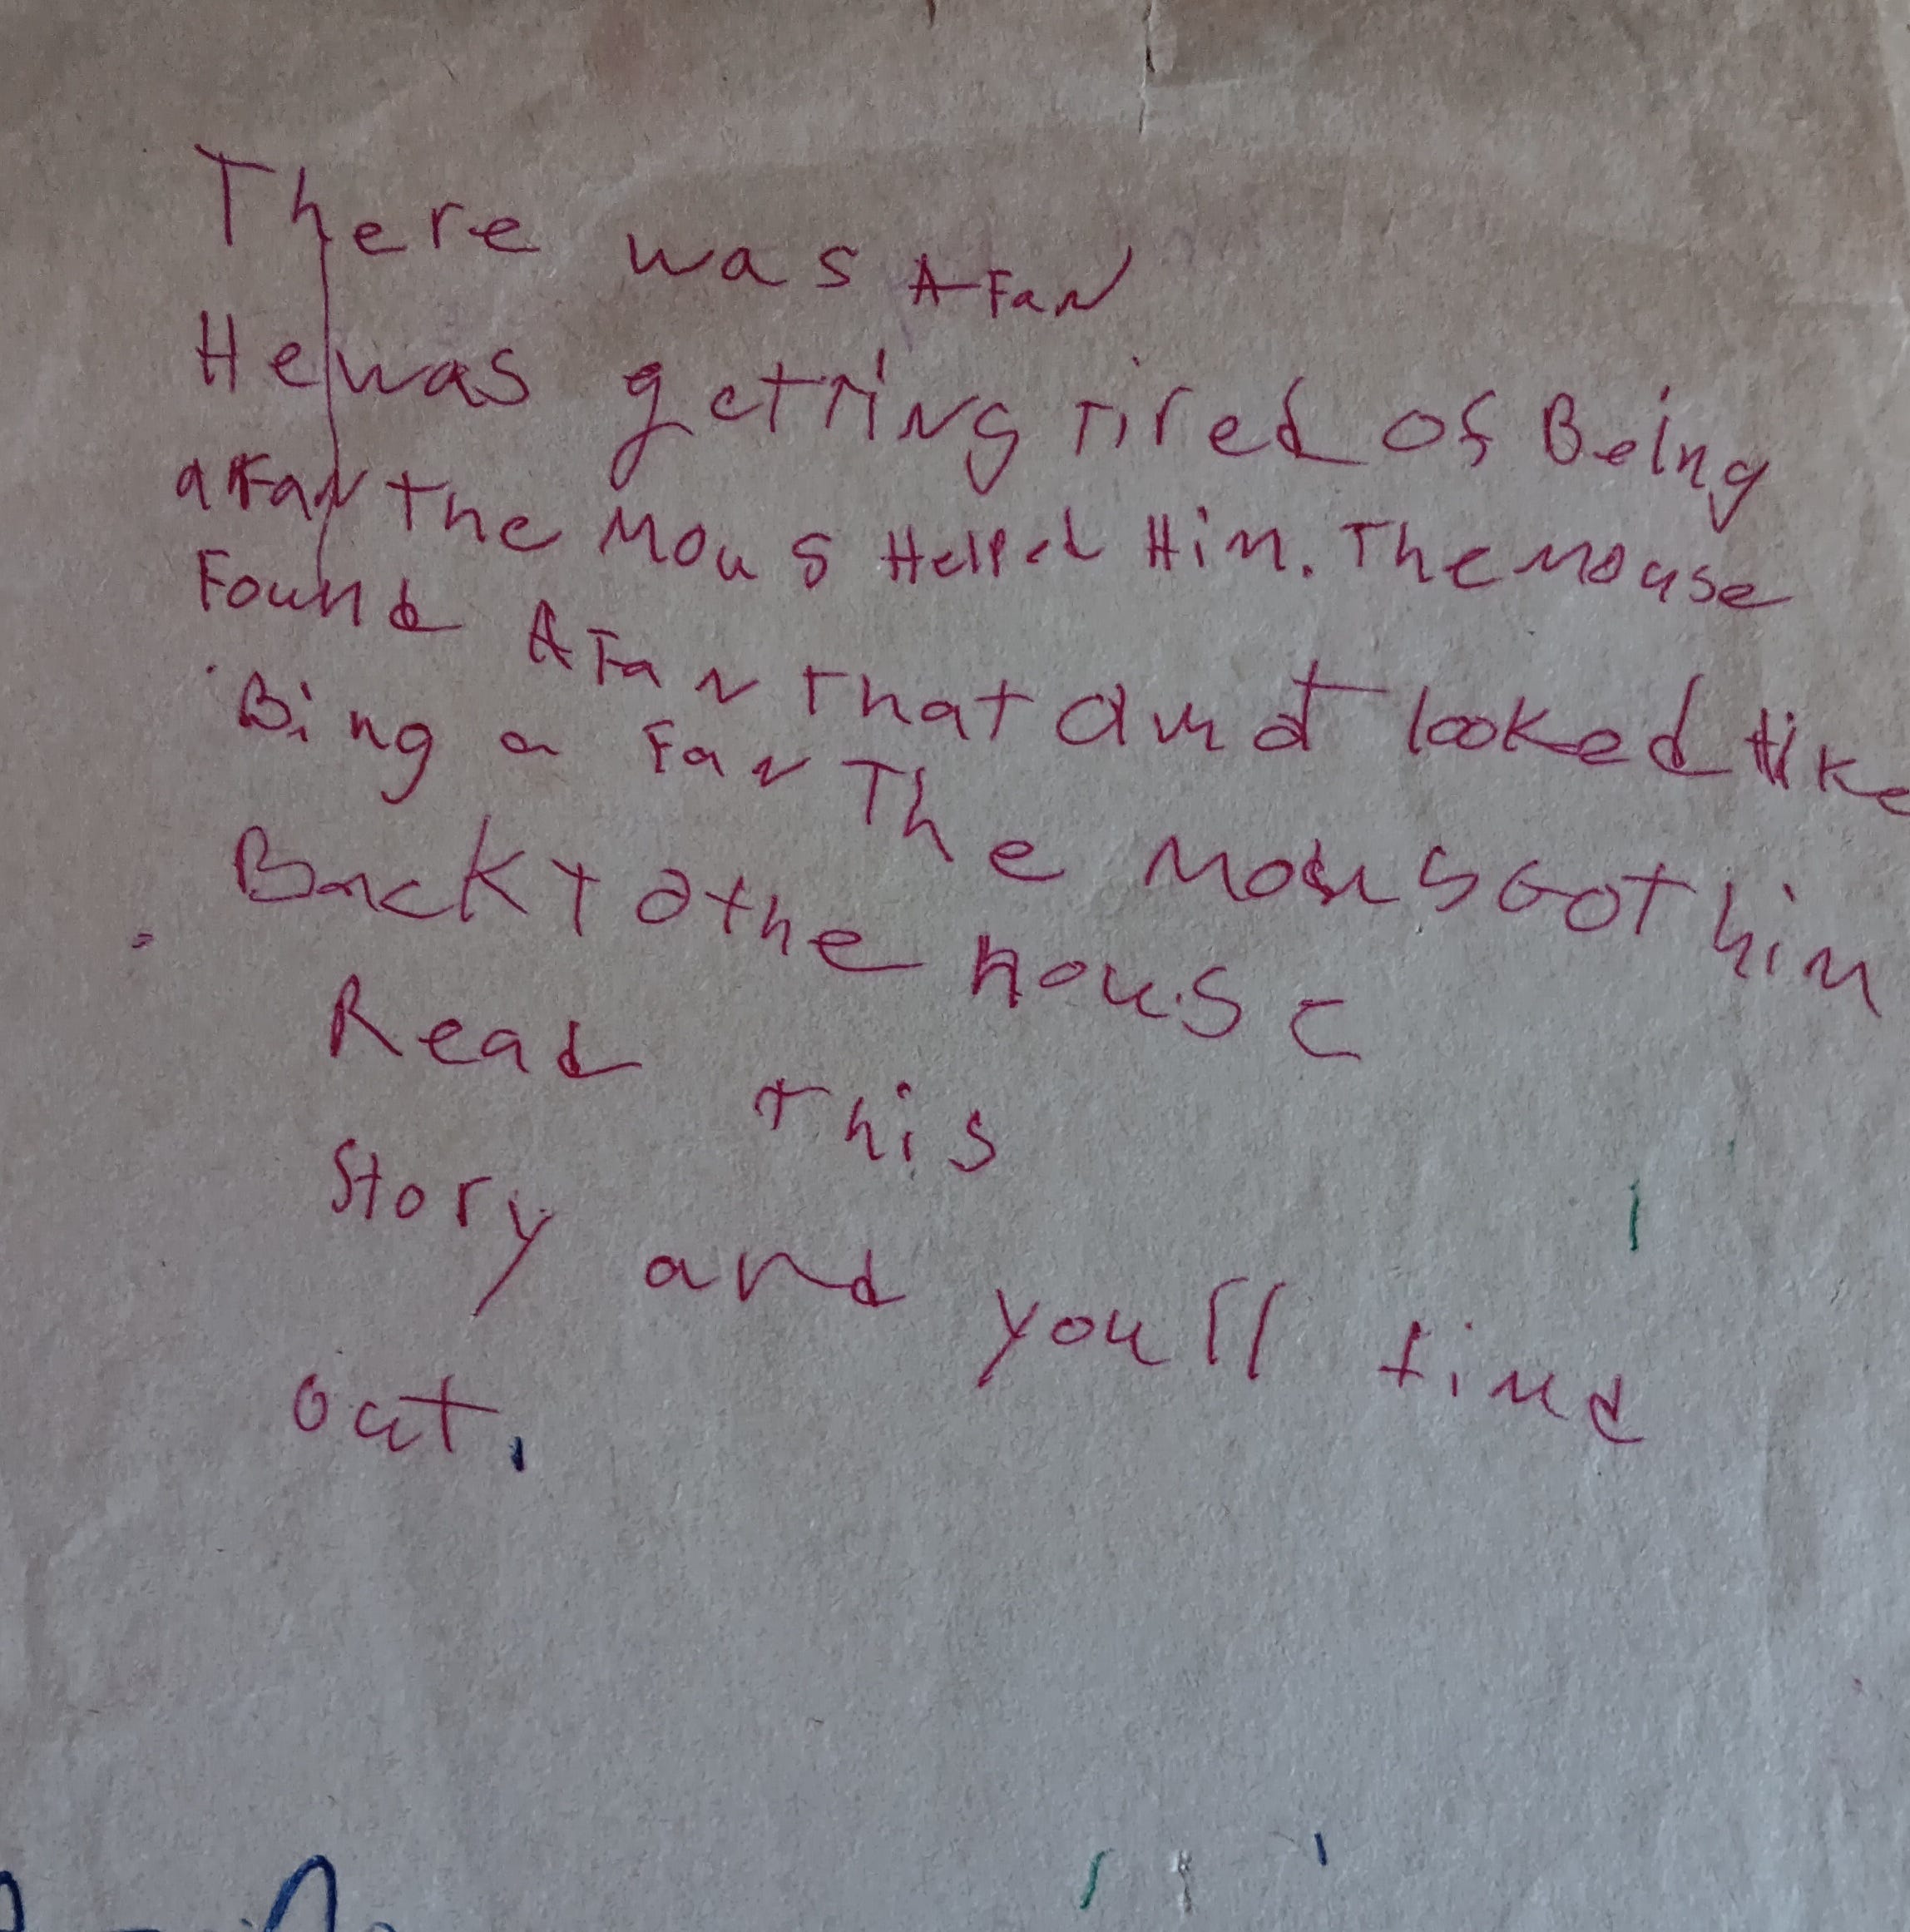 There was A Fan
He was getting tired of Being
a Fan the Mous Helped Him. The Mouse
Found A Fan that looked like
Bing a Fan The Mous Got him
Back to the house
Read this
Story and you'll find
out.